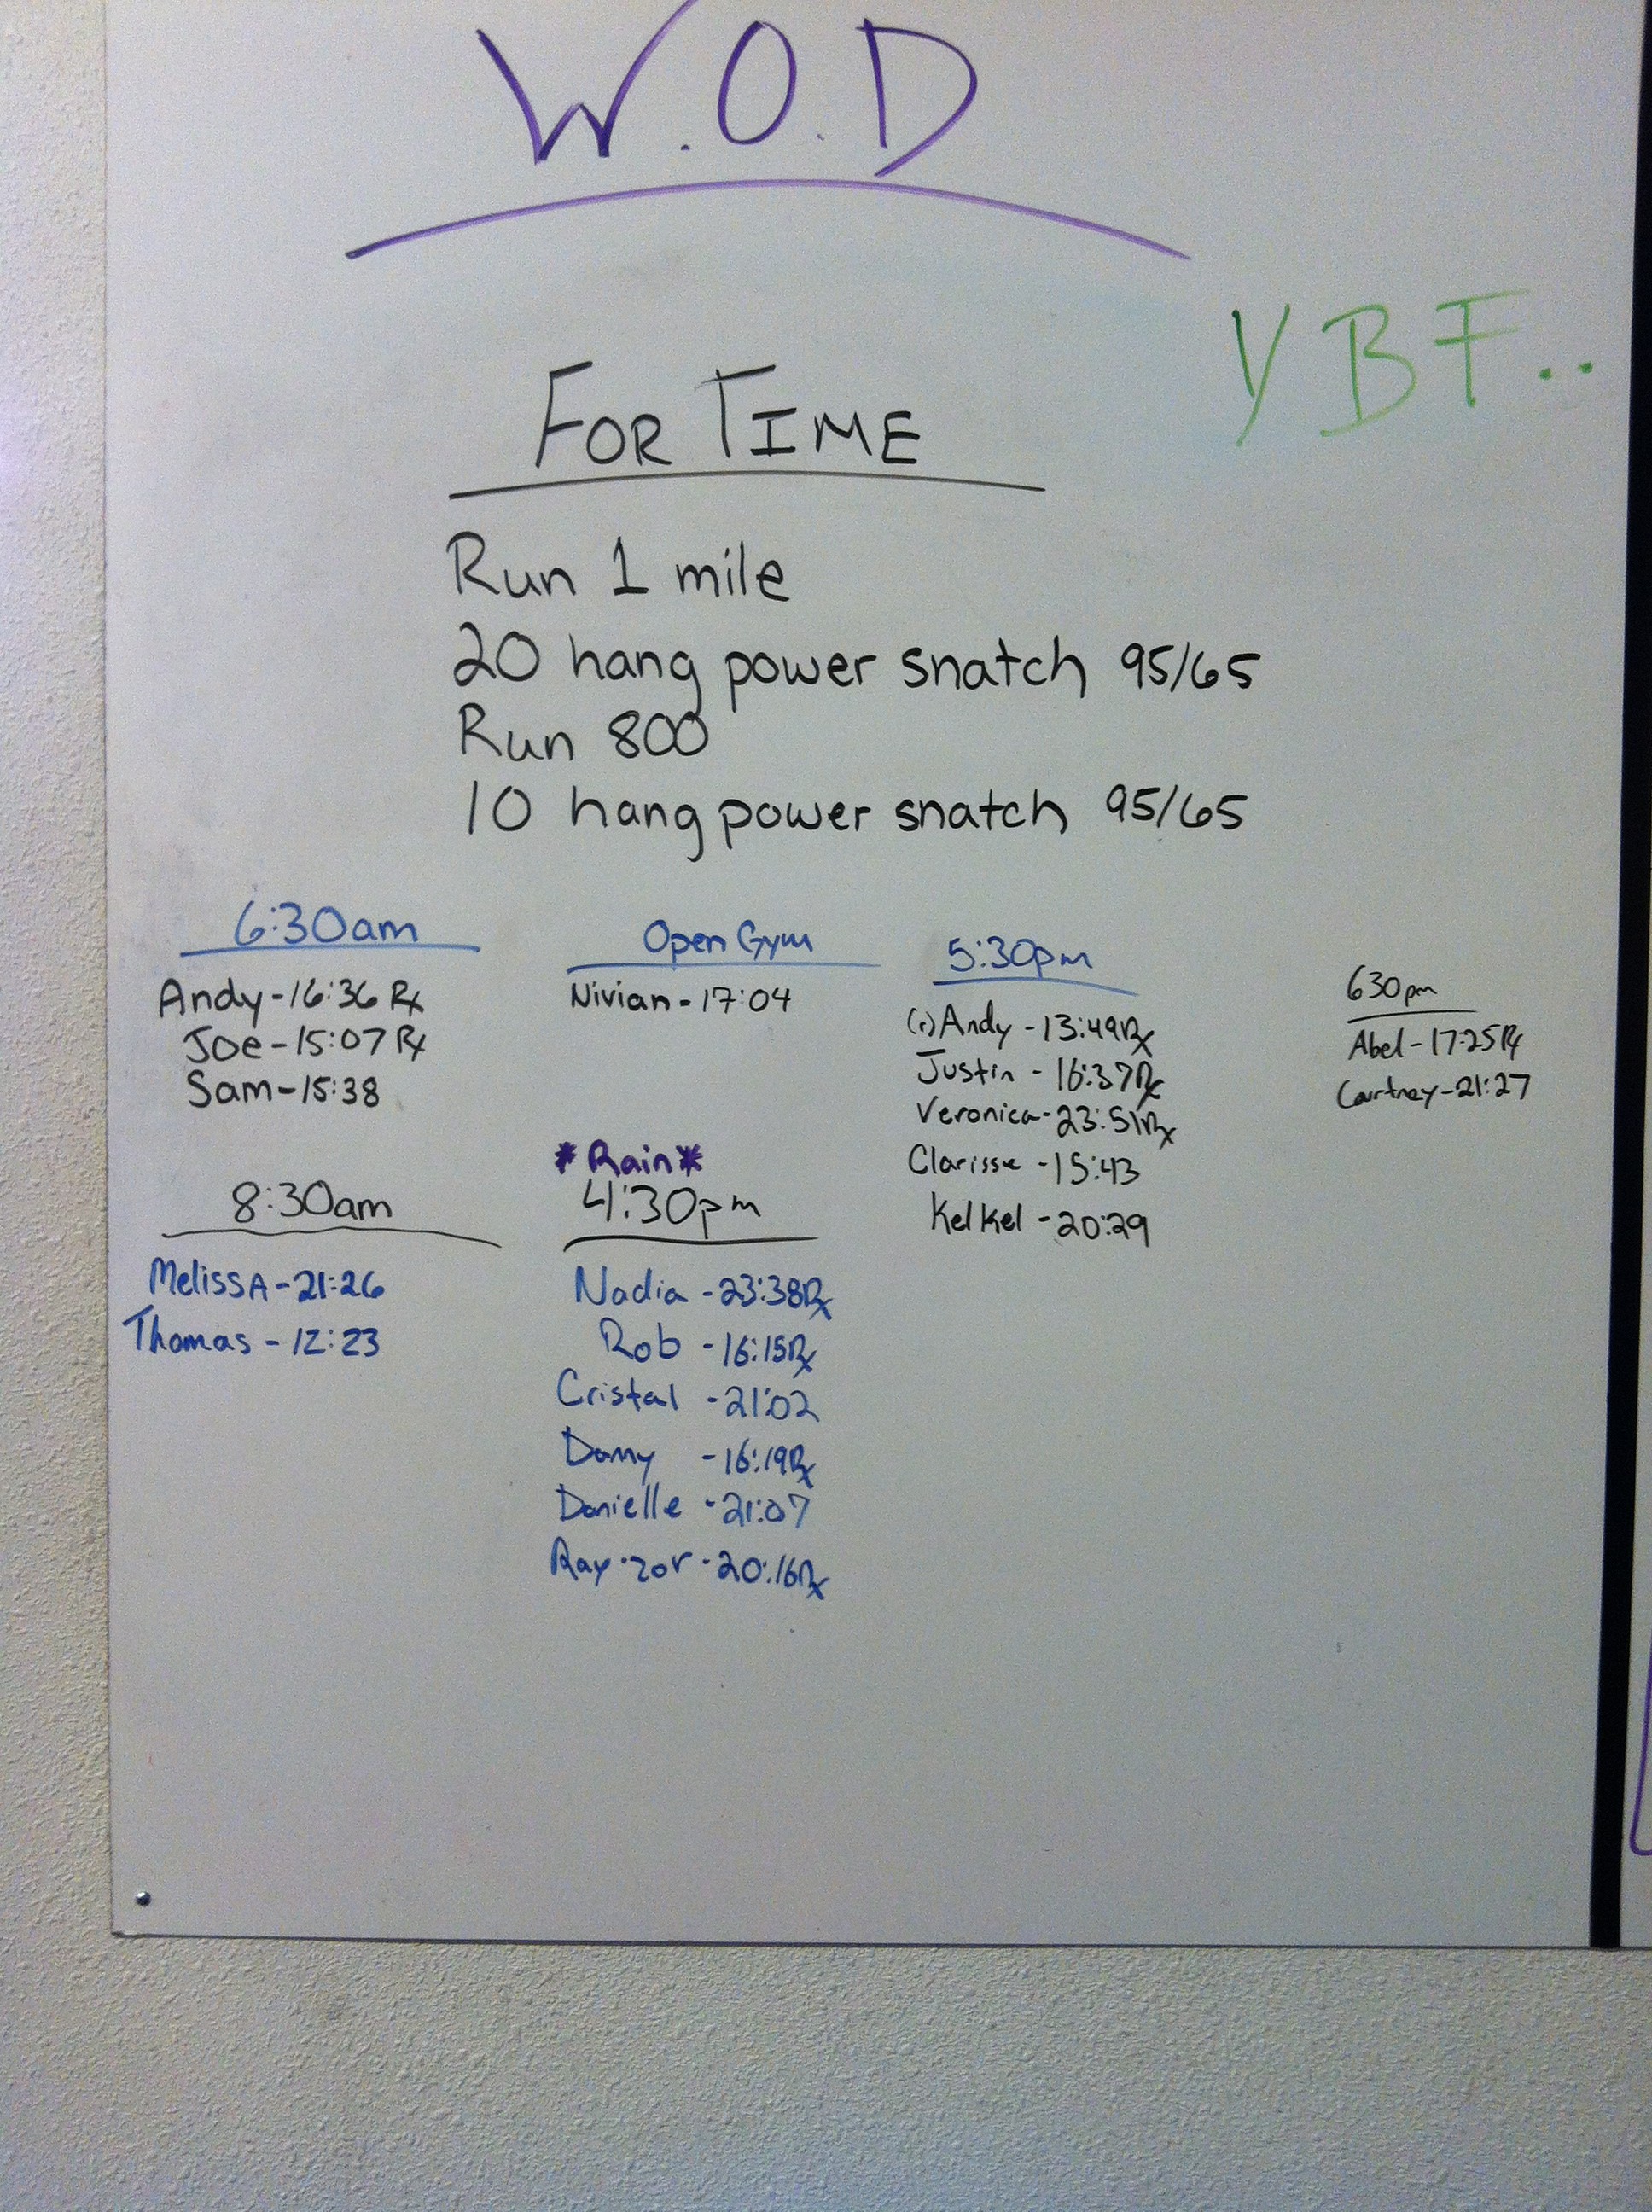 W.O.D
YBF..
FOR TIME
Run 1 mile
20 hang power snatch 95/65
Run 800
10 hang power snatch 95/65
6:30am
Andy-16:36 Rx
Joe-15:07 Rx
Sam-15:38
8:30am
MelissA-21:26
Thomas-12:23
Open Gym
Nivian-17:04
*Rain*
4:30pm
Nadia-23:38Rx
Rob-16:15Rx
Cristal-21:02
Danny-16:19Rx
Danielle-21:07
Ray-zor-20:16Rx
5:30pm
(r)Andy-13:49Rx
Justin-16:37Rx
Veronica-23:51Rx
Clarisse-15:43
Kel Kel-20:29
630pm
Abel-17:25Rx
Courtney-21:27